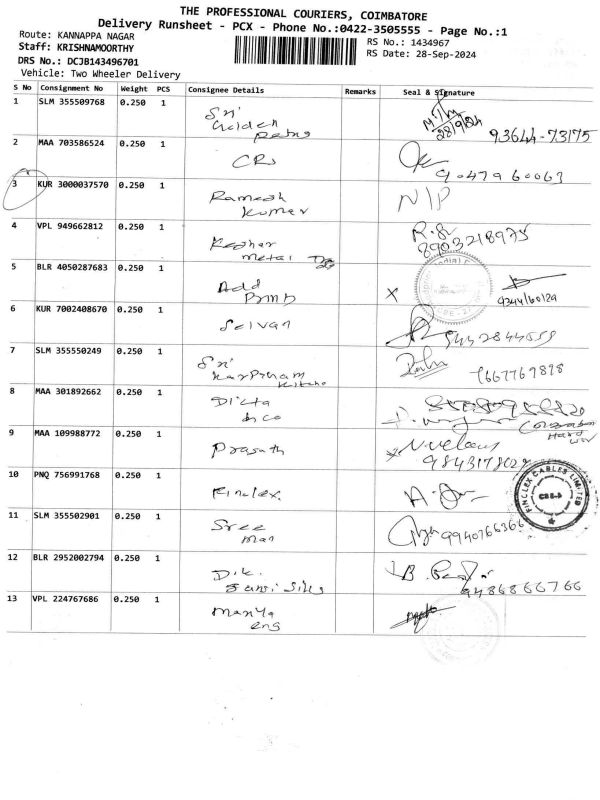 THE PROFESSIONAL COURIERS, COIMBATORE
Delivery Runsheet - PCX - Phone No.:0422-3505555 - Page No.:1
Route: KANNAPPA NAGAR
Staff: KRISHNAMOORTHY
RS No.: 1434967
DRS No.: DCJB143496701
RS Date: 28-Sep-2024
Vehicle: Two Wheeler Delivery
S No Consignment No Weight PCS Consignee Details Remarks Seal & Signature
1 SLM 355509768 0.250 1 Sri Golden
28/9/24 93644-73175
2 MAA 703586524 0.250 1 CRI 9047960063
3 KUR 3000037570 0.250 1 Ramesh Kumar N/P
4 VPL 949662812 0.250 1 Keshar Metal R.S
8903218975
5 BLR 4050287683 0.250 1 Add
6 KUR 7002408670 0.250 1 Selvan 9442844559
7 SLM 355550249 0.250 1 Sri 7667767898
8 MAA 301892662 0.250 1
9 MAA 109988772 0.250 1 Prasath N.velavy
9843178022
10 PNQ 756991768 0.250 1 Finclex FINCLEX CABLES LIMITED CBE-9
11 SLM 355502901 0.250 1 Sree man 9940766366
12 BLR 2952002794 0.250 1 D.K. Silks
9486866766
13 VPL 224767686 0.250 1 Manya eng